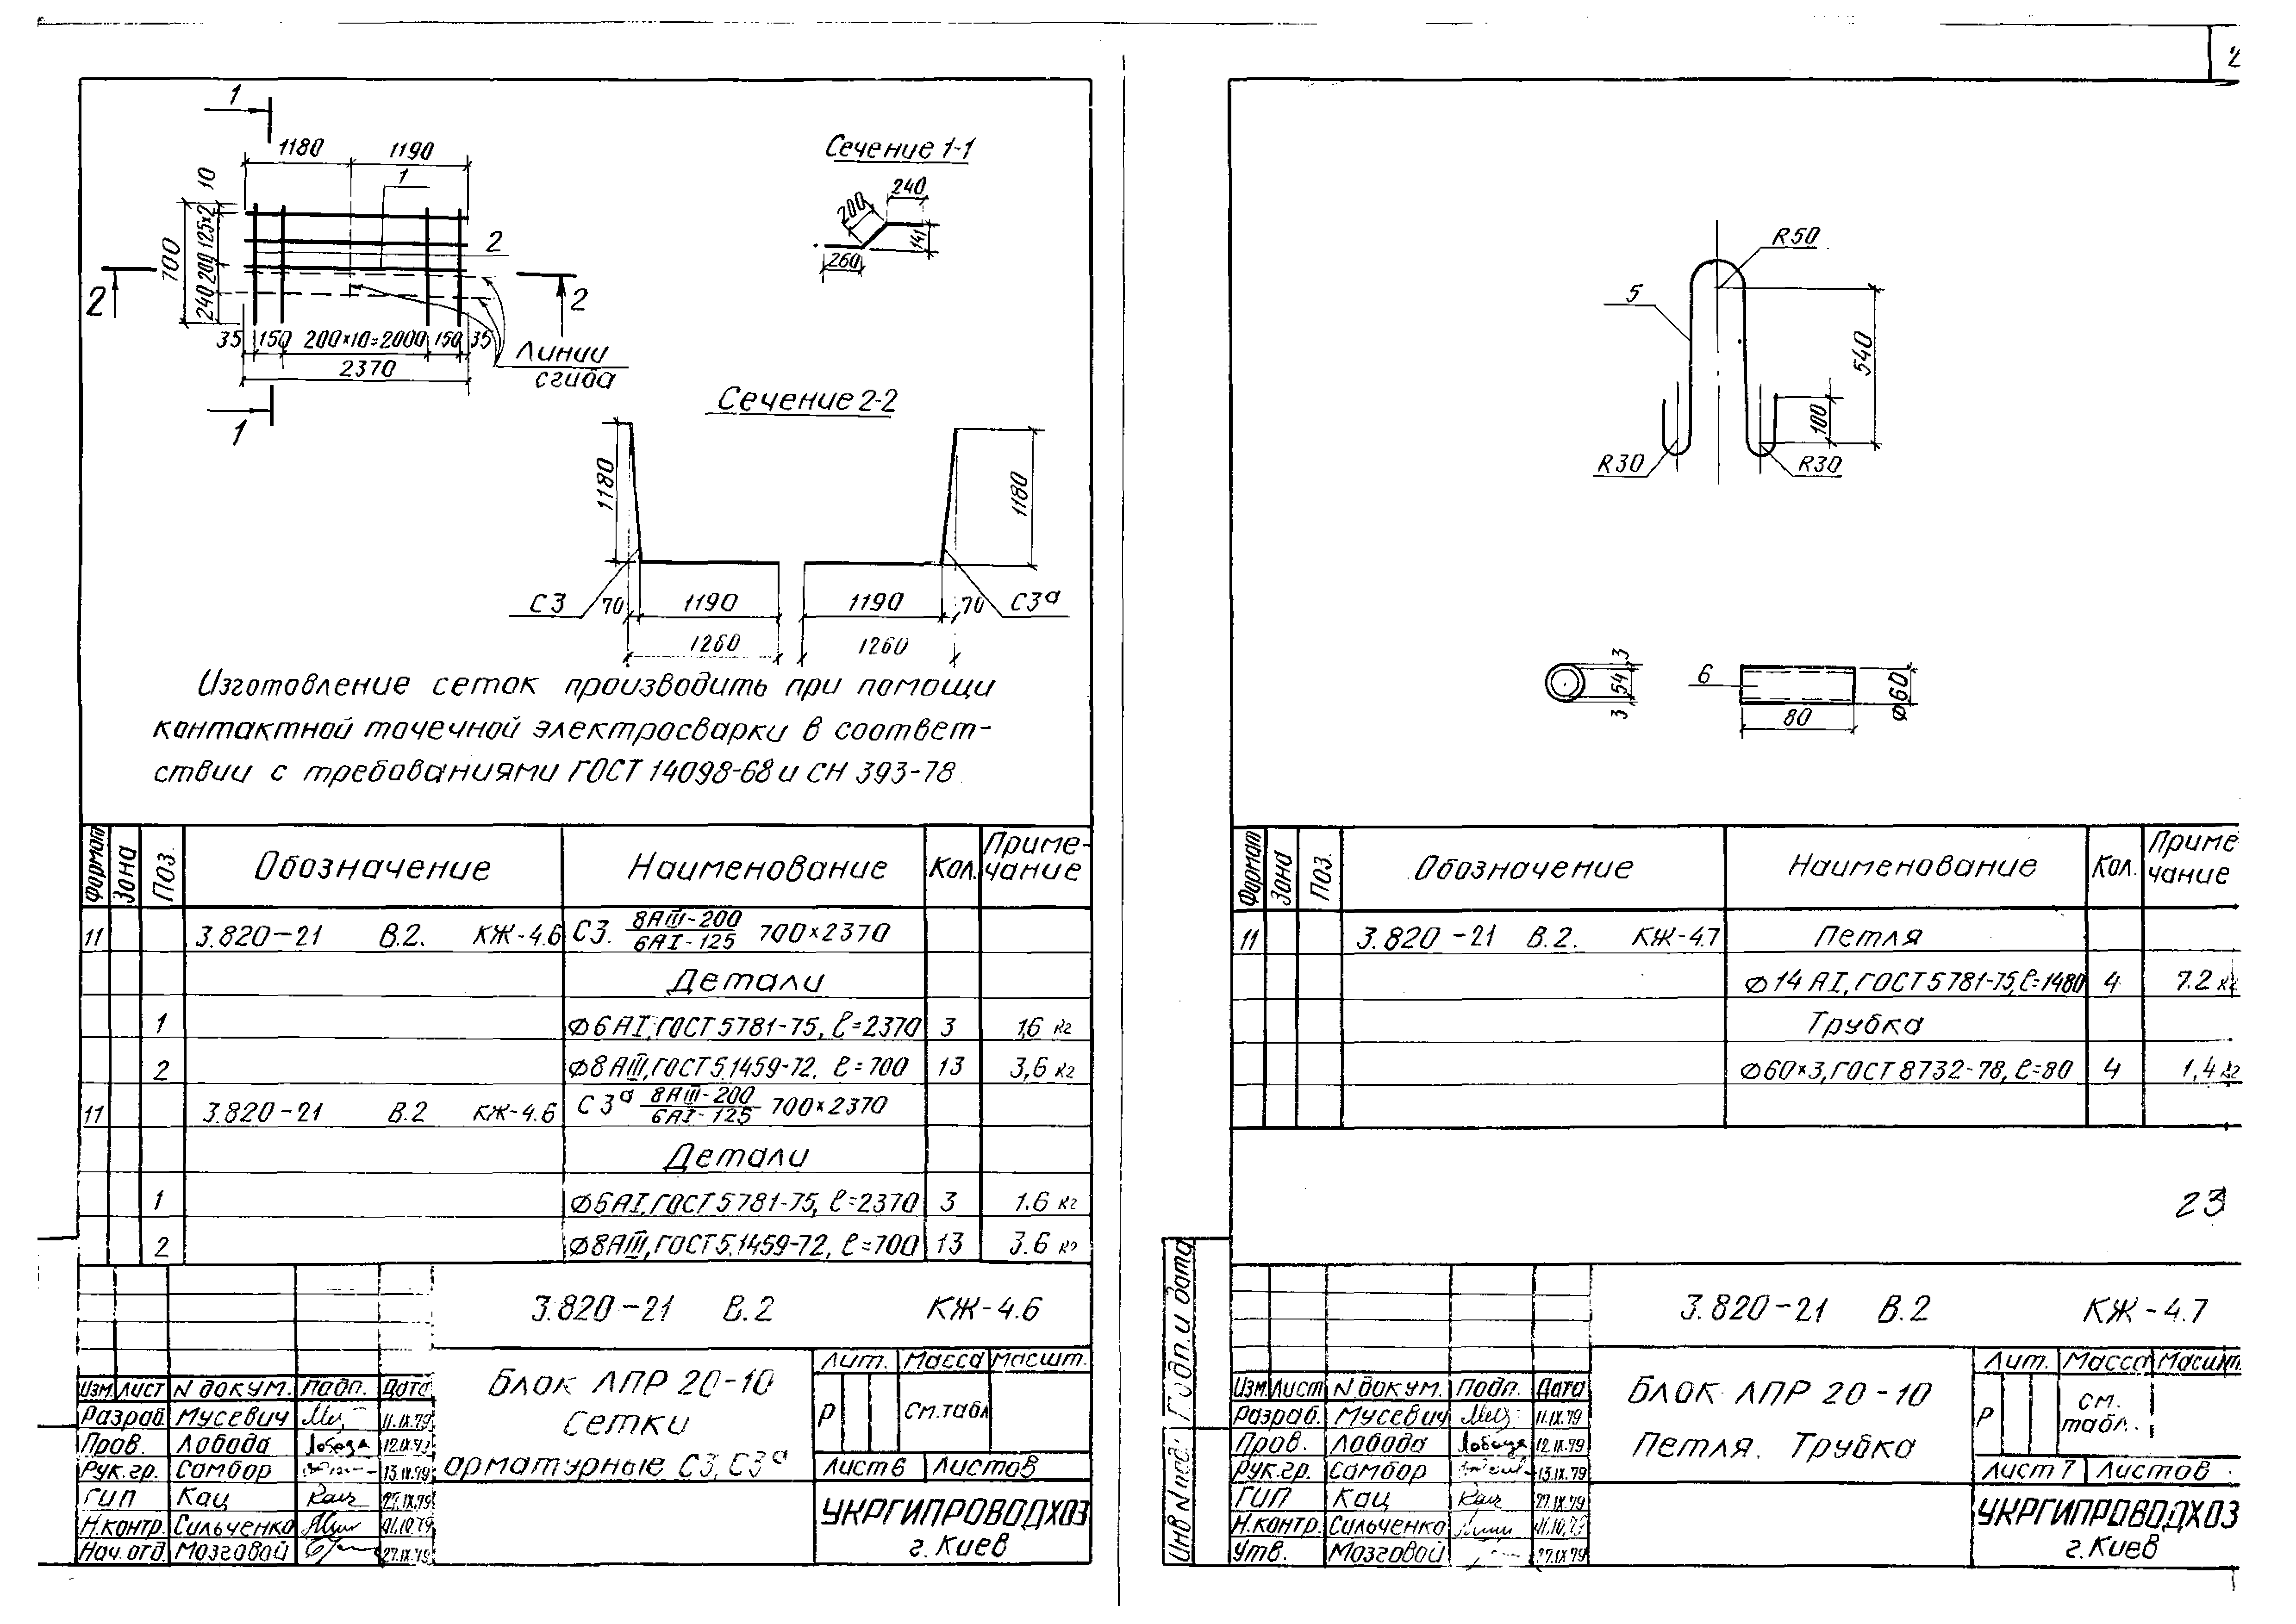 1
1180 1190
10
1
125×2
700
200
240
2
2
2
35 150 200×10=2000 150 35
2370
Линии
сгиба
1
Сечение 1-1
240
200
141
260
Сечение 2-2
1180
1180
С3 70 1190 1190 70 С3ª
1260 1260
Изготовление сеток производить при помощи
контактной точечной электросварки в соответ-
ствии с требованиями ГОСТ 14098-68 и СН 393-78
Формат Зона Поз. Обозначение Наименование Кол. Приме-
чание
11 3.820-21 В.2. КЖ-4.6 С3. 8АIII-200 / 6АI-125 700×2370
Детали
1 Ф6АI, ГОСТ 5781-75, ℓ=2370 3 1,6 кг
2 Ф8АIII, ГОСТ 5.1459-72, ℓ=700 13 3,6 кг
11 3.820-21 В.2 КЖ-4.6 С3ª 8АIII-200 / 6АI-125 700×2370
Детали
1 Ф6АI, ГОСТ 5781-75, ℓ=2370 3 1.6 кг
2 Ф8АIII, ГОСТ 5.1459-72, ℓ=700 13 3.6 кг
3.820-21 В.2 КЖ-4.6
Изм. Лист N докум. Подп. Дата
Разраб. Мусевич 11.IX.79
Пров. Лобода Лобода 12.IX.79
Рук.гр. Самбор 13.IX.79
ГИП Кац Кац 27.IX.79
Н.контр. Сильченко 01.10.79
Нач.отд. Мозговой 27.IX.79
Блок ЛПР 20-10
Сетки
арматурные С3, С3ª
Лит. Масса Масшт.
Р См.табл
Лист 6 Листов
УКРГИПРОВОДХОЗ
г. Киев
2
R50
5
540
100
R30 R30
3
54
3
6
80
Ф60
Формат Зона Поз. Обозначение Наименование Кол. Приме
чание
11 3.820-21 В.2. КЖ-4.7 Петля
Ф14 АI, ГОСТ 5781-75, ℓ=1480 4 7.2 кг
Трубка
Ф60×3, ГОСТ 8732-78, ℓ=80 4 1,4 кг
23
Инв N подл. Подп. и дата
3.820-21 В.2 КЖ-4.7
Изм. Лист N докум. Подп. Дата
Разраб. Мусевич 11.IX.79
Пров. Лобода Лобода 12.IX.79
Рук.гр. Самбор 13.IX.79
ГИП Кац Кац 27.IX.79
Н.контр. Сильченко 01.10.79
Утв. Мозговой 27.IX.79
Блок ЛПР 20-10
Петля. Трубка
Лит. Масса Масшт
Р см.
табл.
Лист 7 Листов
УКРГИПРОВОДХОЗ
г. Киев